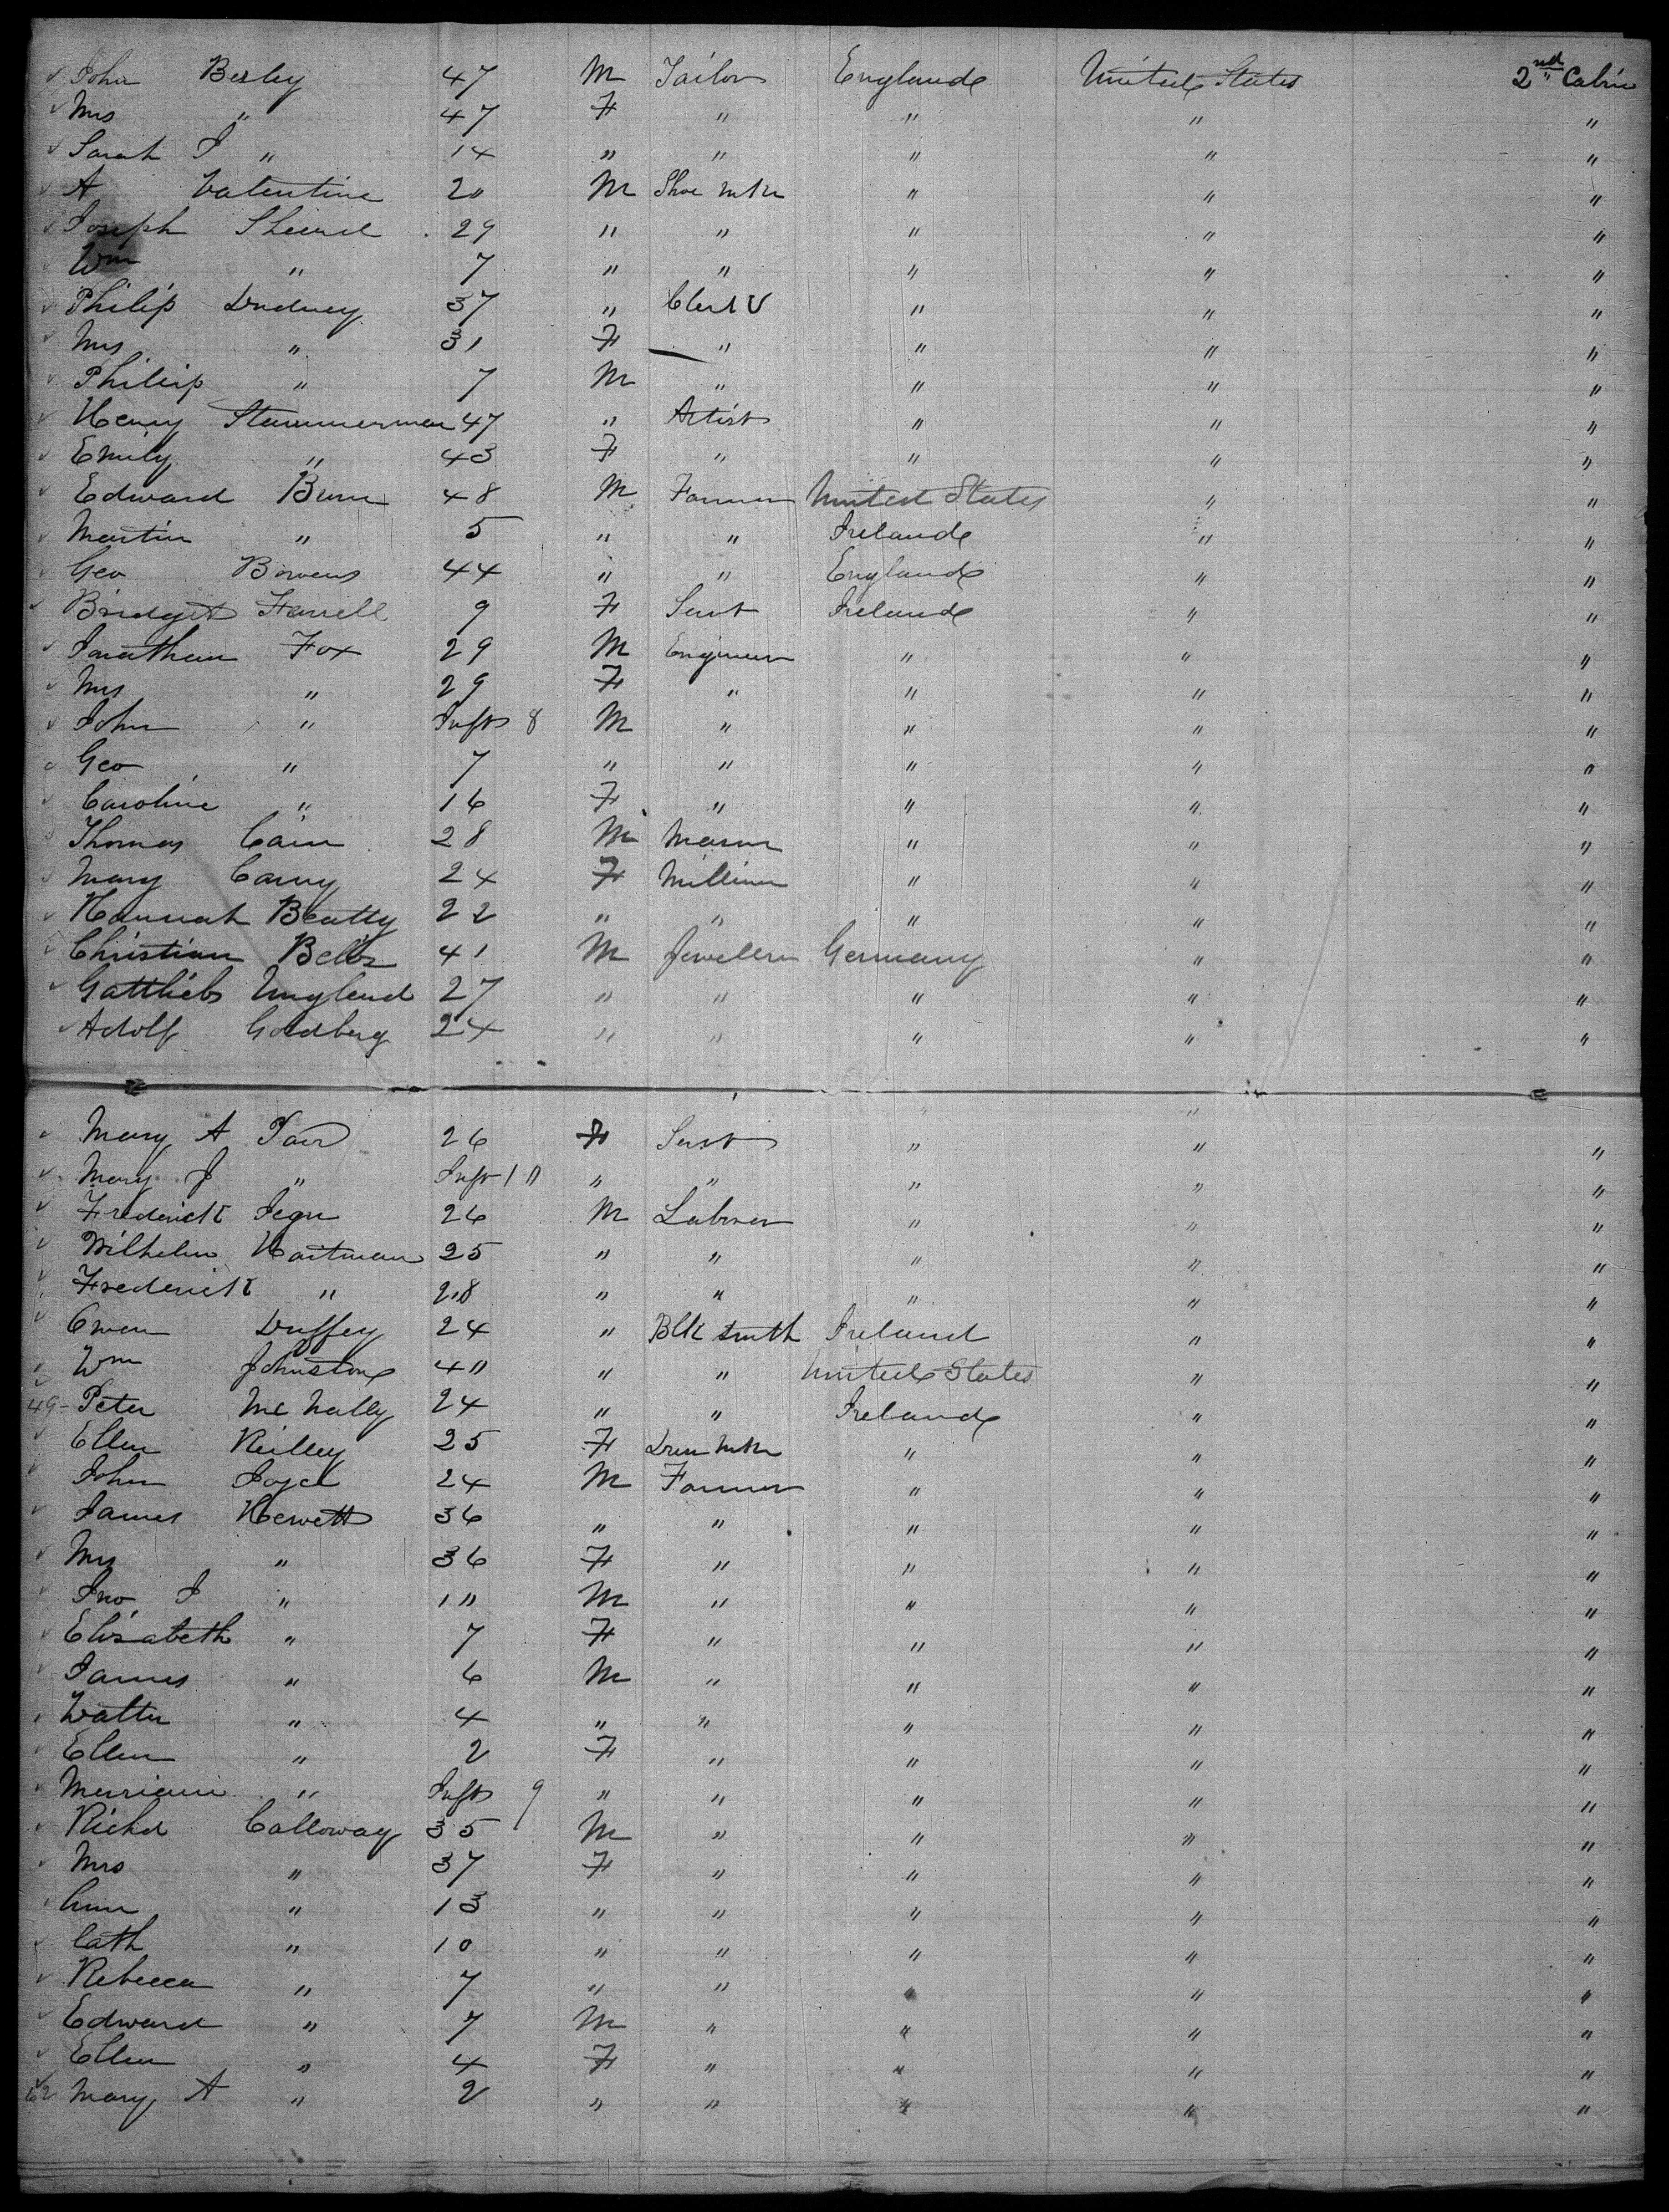 John Besley 47 M Tailor England United States 2nd Cabin
Mrs " 47 F " " " "
Sarah J " 14 " " " " "
A Valentine 20 M Shoe mkr " " "
Joseph 29 " " " " "
Wm " 7 " " " " "
Philip Dudney 37 " Clerk " " "
Mrs " 31 F " " " "
Philip " 7 M " " " "
Henry Stammerman 47 " Artist " " "
Emily " 43 F " " " "
Edward Burn 48 M Farmer United States " "
Martin " 5 " " Ireland " "
Geo Bowens 44 " " England " "
Bridget Farrell 9 F Servt Ireland " "
Jonathan Fox 29 M Engineer " " "
Mrs " 29 F " " " "
John " Inft 8 M " " " "
Geo " 7 " " " " "
Caroline " 16 F " " " "
Thomas Cain 28 M Mason " " "
Mary Carny 24 F Milliner " " "
Hannah Beatty 22 " " " " "
Christian 41 M Jeweller Germany " "
Gottlieb 27 " " " " "
Adolf Goldberg 24 " " " " "
" "
Mary A 26 F Servt " " "
Mary J " Inft 10 " " " " "
Frederick 26 M Laborer " " "
Wilhelm Hartman 25 " " " " "
Frederick " 28 " " " " "
Owen Duffey 24 " Blk smith Ireland " "
Wm Johnstone 40 " " United States " "
49 - Peter Mc Nally 24 " " Ireland " "
Ellen Reilley 25 F Dress mkr " " "
John Joyce 24 M Farmer " " "
James Hewett 36 " " " " "
Mrs " 36 F " " " "
Jno J " 10 M " " " "
Elizabeth " 7 F " " " "
James " 6 M " " " "
Walter " 4 " " " " "
Ellen " 2 F " " " "
" Inft 9 " " " " "
Richd Calloway 35 M " " " "
Mrs " 37 F " " " "
Ann " 13 " " " " "
Cath " 10 " " " " "
Rebecca " 7 " " " " "
Edward " 7 M " " " "
Ellen " 4 F " " " "
62 Mary A " 2 " " " " "